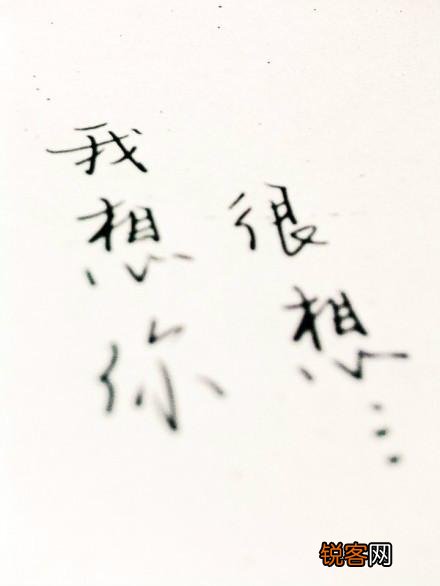 我想你
很想...
锐客网